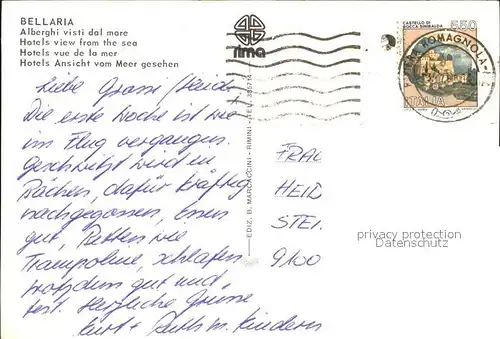 BELLARIA
Alberghi visti dal mare
Hotels view from the sea
Hotels vue de la mer
Hotels Ansicht vom Meer gesehen
rima
CASTELLO DI
ROCCA SINIBALDA
550
ROMAGNOLA
ITALIA
EDIZ. B. MARCACCINI - RIMINI - TEL.
Liebe
Die erste Woche ist wie
im Flug vergangen.
Geschwitzt wird in
Bächen, dafür kräftig
nachgegossen, Essen
gut, Betten wie
Trampoline, schlafen
trotzdem gut und
fest. Herzliche Grüsse
Kurt + Ruth m. Kindern
FRAU
HEID
STEI.
9100
privacy protection
Datenschutz